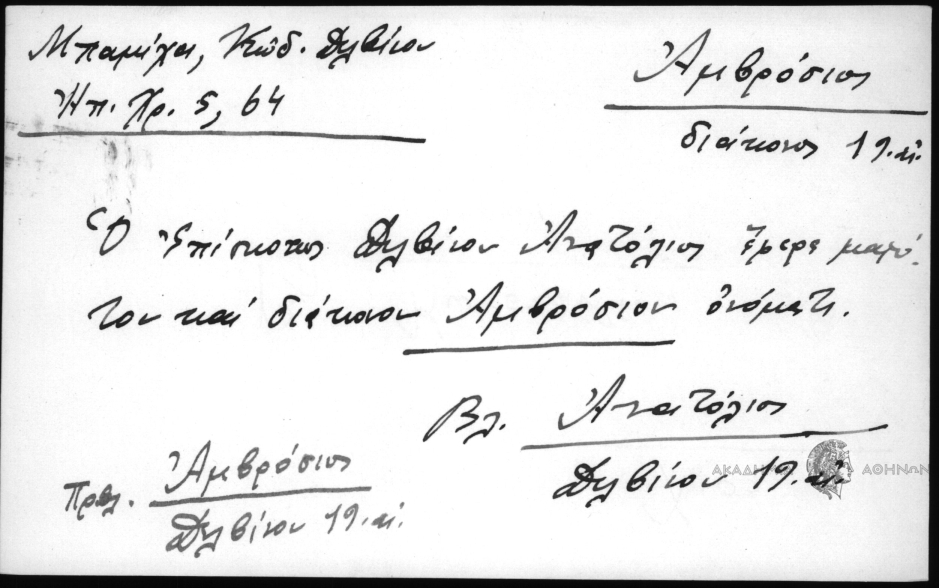 Μπαμίχα, Κώδ. Δελβίνου
Ἠπ. Χρ. 5, 64
Ἀμβρόσιος
διάκονος 19. αἰ.
Ὁ Ἐπίσκοπος Δελβίνου Ἀνατόλιος ἔφερε μαζύ
του καί διάκονον Ἀμβρόσιον ὀνόματι.
Βλ. Ἀνατόλιος
Δελβίνου 19. αἰ.
Πρβλ. Ἀμβρόσιος
Δελβίνου 19. αἰ.
ΑΚΑΔΗΜΙΑ ΑΘΗΝΩΝ